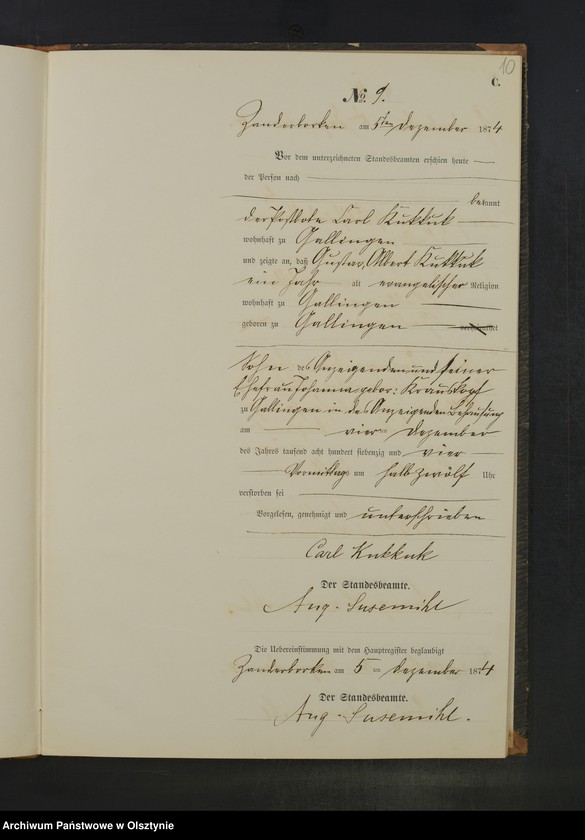 10
C.
No. 9.
Zanderborken am 5ten Dezember 1874
Vor dem unterzeichneten Standesbeamten erschien heute
der Person nach
bekannt
der Postbote Carl Kukkuk
wohnhaft zu Gallingen
und zeigte an, daß Gustav, Albert Kukkuk
ein Jahr alt evangelischer Religion
wohnhaft zu Gallingen
geboren zu Gallingen
Sohn des Anzeigenden und seiner
Ehefrau Johanna gebor: Krauskopf
zu Gallingen in des Anzeigenden Behausung
am vier Dezember
des Jahres tausend acht hundert siebenzig und vier
Vormittags um halb zwölf Uhr
verstorben sei
Vorgelesen, genehmigt und unterschrieben
Carl Kukkuk
Der Standesbeamte.
Aug. Susemihl
Die Uebereinstimmung mit dem Hauptregister beglaubigt
Zanderborken am 5 ten Dezember 1874
Der Standesbeamte.
Aug. Susemihl.
Archiwum Państwowe w Olsztynie